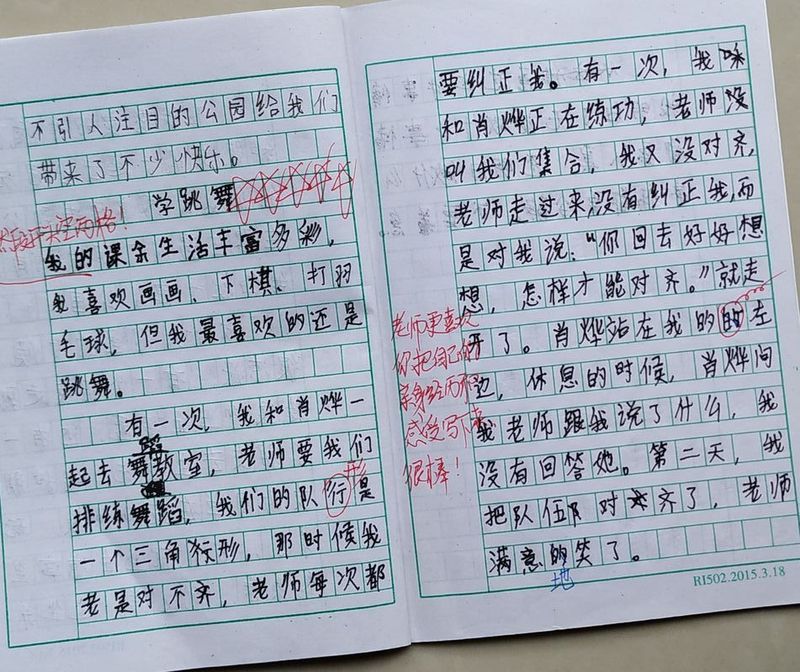 不引人注目的公园给我们
带来了不少快乐。
学跳舞
空两格!
我的课余生活丰富多彩,
我喜欢画画、下棋、打羽
毛球,但我最喜欢的还是
跳舞。
有一次,我和肖烨一
起去舞蹈教室,老师要我们
排练舞蹈,我们的队行是
形
一个三角形,那时候我
老是对不齐,老师每次都
要纠正我。有一次,我
和肖烨正在练功,老师没
叫我们集合,我又没对齐,
老师走过来,没有纠正我,而
是对我说:“你回去好好想
想,怎样才能对齐。”就走
开了。肖烨站在我的的左
边,休息的时候,肖烨问
我老师跟我说了什么,我
没有回答她。第二天,我
把队伍对齐了,老师
满意的笑了。
地
老师更喜欢
你把自己的
亲身经历和
感受写下来
很棒!
RI502.2015.3.18